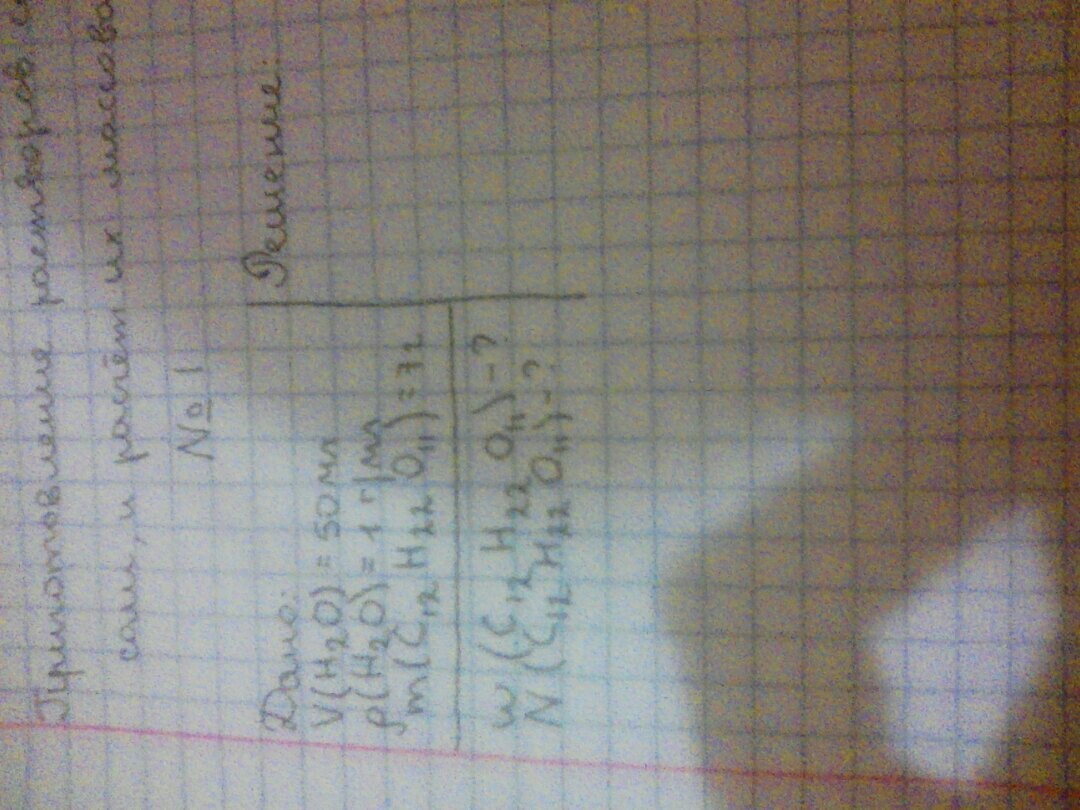 Приготовление растворов са
соли, и расчёт их массова
№ 1
Дано:
V(H₂O) = 50 мл
ρ(H₂O) = 1 г/мл
m(C₁₂H₂₂O₁₁) = 7г
W(C₁₂H₂₂O₁₁) - ?
N(C₁₂H₂₂O₁₁) - ?
Решение: